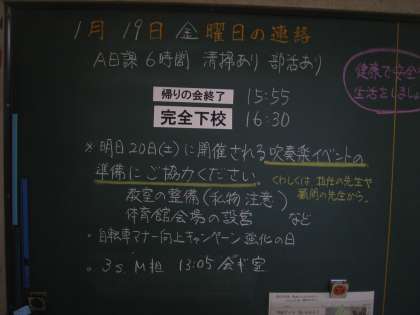 1月 19日 金 曜日の連絡
A日課 6時間 清掃あり 部活あり
健康で安全
生活をしましょ
帰りの会終了 15:55
完全下校 16:30
※ 明日20日(土)に開催される吹奏楽イベントの
準備にご協力ください。
くわしくは 担任の先生や
顧問の先生から。
教室の整備(私物注意)
体育館会場の設営 など
・自転車マナー向上キャンペーン 強化の日
。3s M担 13:05 会ギ室